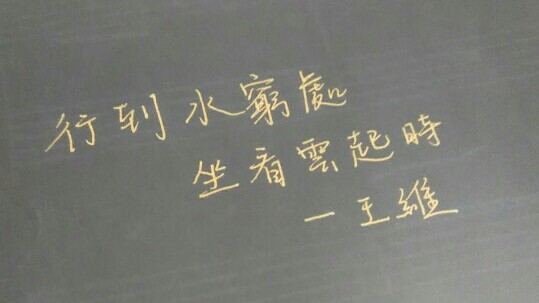 行到水窮處
坐看雲起時
—王維